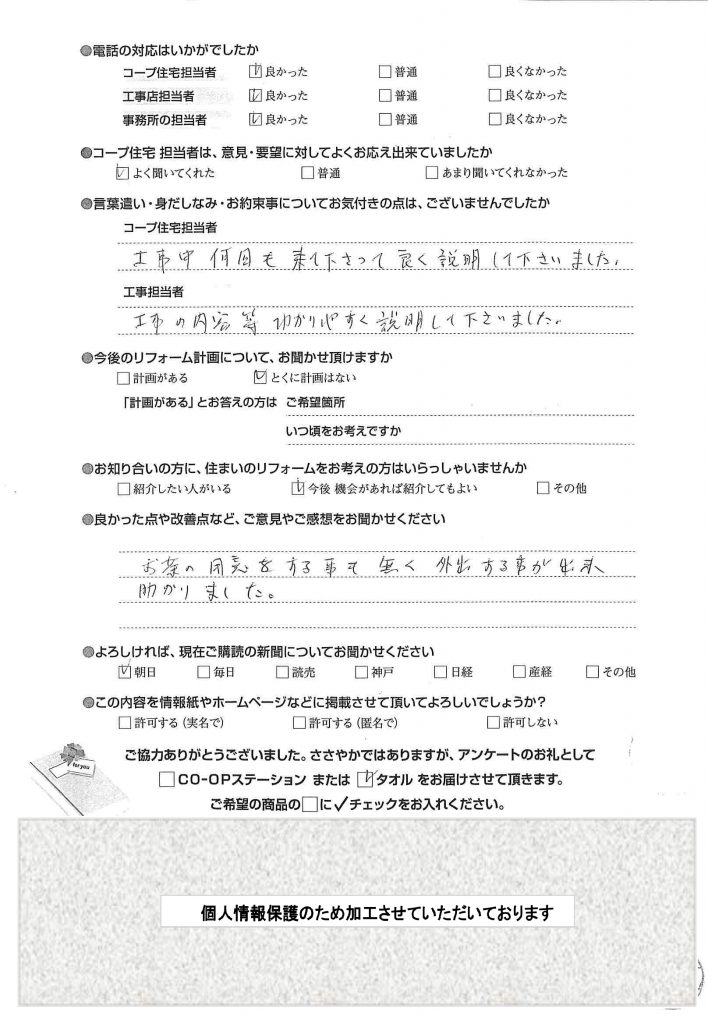 ●電話の対応はいかがでしたか
コープ住宅担当者 ☑良かった □普通 □良くなかった
工事店担当者 ☑良かった □普通 □良くなかった
事務所の担当者 ☑良かった □普通 □良くなかった
●コープ住宅 担当者は、意見・要望に対してよくお応え出来ていましたか
☑よく聞いてくれた □普通 □あまり聞いてくれなかった
●言葉遣い・身だしなみ・お約束事についてお気付きの点は、ございませんでしたか
コープ住宅担当者
工事中 何回も 来て下さって 良く 説明して下さいました。
工事担当者
工事の内容等 わかりやすく 説明して下さいました。
●今後のリフォーム計画について、お聞かせ頂けますか
□計画がある ☑とくに計画はない
「計画がある」とお答えの方は ご希望箇所
いつ頃をお考えですか
●お知り合いの方に、住まいのリフォームをお考えの方はいらっしゃいませんか
□紹介したい人がいる ☑今後 機会があれば紹介してもよい □その他
●良かった点や改善点など、ご意見やご感想をお聞かせください
お茶の用意をする事も 無く 外出する事が出来
助かりました。
●よろしければ、現在ご購読の新聞についてお聞かせください
☑朝日 □毎日 □読売 □神戸 □日経 □産経 □その他
●この内容を情報紙やホームページなどに掲載させて頂いてよろしいでしょうか?
□許可する(実名で) □許可する(匿名で) □許可しない
for you
ご協力ありがとうございました。ささやかではありますが、アンケートのお礼として
□CO-OPステーション または ☑タオル をお届けさせて頂きます。
ご希望の商品の□に✓チェックをお入れください。
個人情報保護のため加工させていただいております